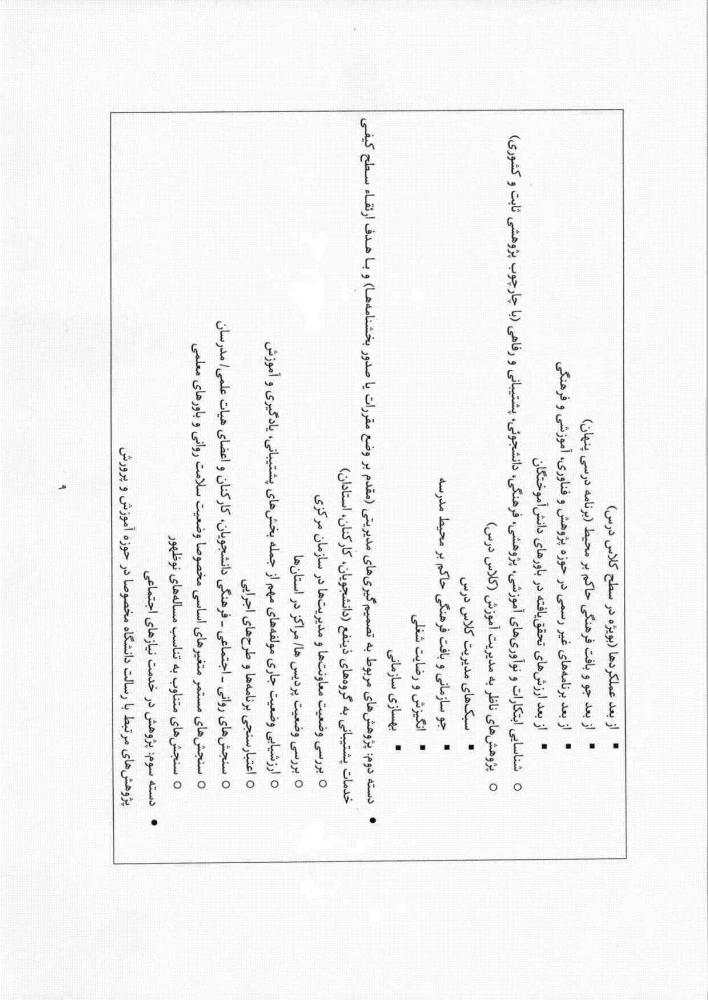 ▪ از بعد عملکردها (بویژه در سطح کلاس درس)
▪ از بعد جو و بافت فرهنگی حاکم بر محیط (برنامه درسی پنهان)
▪ از بعد برنامه‌های غیر رسمی در حوزه پژوهش و فناوری، آموزشی و فرهنگی
▪ از بعد ارزش‌های تحقق‌یافته در باورهای دانش‌آموختگان
○ شناسایی ابتکارات و نوآوری‌های آموزشی، پژوهشی، فرهنگی، دانشجوئی، پشتیبانی و رفاهی (با چارچوب پژوهشی ثابت و کشوری)
○ پژوهش‌های ناظر به مدیریت آموزش (کلاس درس)
▪ سبک‌های مدیریت کلاس درس
▪ جو سازمانی و بافت فرهنگی حاکم بر محیط مدرسه
▪ انگیزش و رضایت شغلی
▪ بهسازی سازمانی
• دسته دوم: پژوهش‌های مربوط به تصمیم گیری‌های مدیریتی (مقدم بر وضع مقررات یا صدور بخشنامه‌ها) و با هدف ارتقاء سطح کیفی
خدمات پشتیبانی به گروه‌های ذینفع (دانشجویان، کارکنان، استادان)
○ بررسی وضعیت معاونت‌ها و مدیریت‌ها در سازمان مرکزی
○ بررسی وضعیت پردیس ها/ مراکز در استان‌ها
○ ارزشیابی وضعیت جاری مولفه‌های مهم از جمله بخش‌های پشتیبانی، یادگیری و آموزش
○ اعتبارسنجی برنامه‌ها و طرح‌های اجرایی
○ سنجش‌های روانی - اجتماعی - فرهنگی دانشجویان، کارکنان و اعضای هیات علمی/ مدرسان
○ سنجش‌های مستمر متغیرهای اساسی مخصوصا وضعیت سلامت روانی و باورهای معلمی
○ سنجش‌های متناوب به تناسب مساله‌های نوظهور
• دسته سوم: پژوهش در خدمت نیازهای اجتماعی
پژوهش‌های مرتبط با رسالت دانشگاه مخصوصا در حوزه آموزش و پرورش
۹